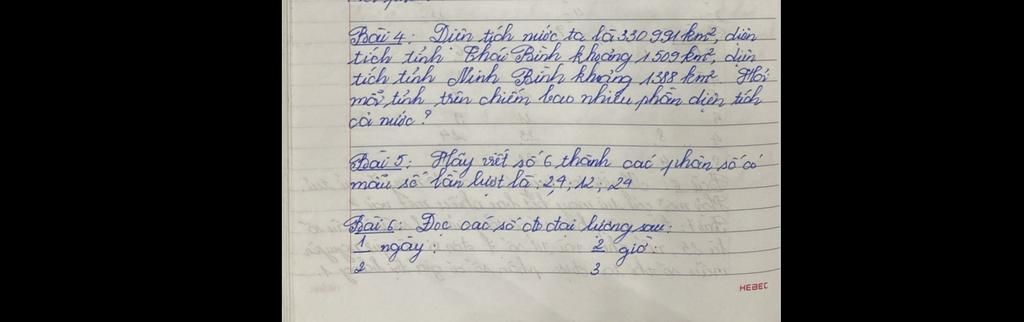 Bài 4: Diện tích nước ta là 330 991 km², diện
tích tỉnh Thái Bình khoảng 1509 km², diện
tích tỉnh Ninh Bình khoảng 1388 km². Hỏi
mỗi tỉnh trên chiếm bao nhiêu phần diện tích
cả nước?
Bài 5: Hãy viết số 6 thành các phân số có
mẫu số lần lượt là: 2,4; 12; 24
Bài 6: Đọc các số đo đại lượng sau:
1/2 ngày: 2/3 giờ:
HEBEC